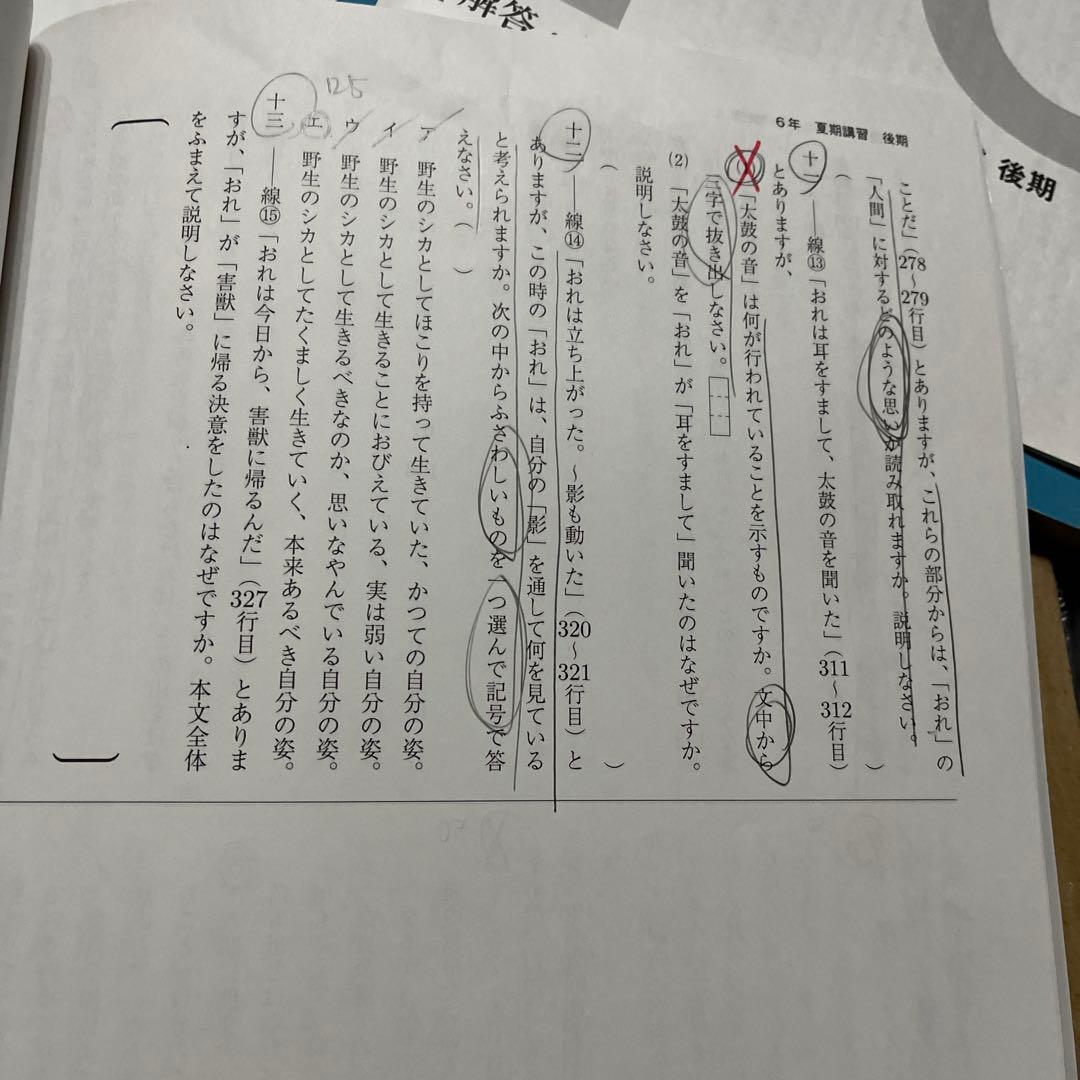 解答
後期
6年 夏期講習 後期
ことだ」(278〜279行目)とありますが、これらの部分からは、「おれ」の
「人間」に対するどのような思いが読み取れますか。説明しなさい。
( )
十一 ――線⑬「おれは耳をすまして、太鼓の音を聞いた」(311〜312行目)
とありますが、
(1) 「太鼓の音」は何が行われていることを示すものですか。文中から
三字で抜き出しなさい。
(2) 「太鼓の音」を「おれ」が「耳をすまして」聞いたのはなぜですか。
説明しなさい。
( )
十二 ――線⑭「おれは立ち上がった。〜影も動いた」(320〜321行目)と
ありますが、この時の「おれ」は、自分の「影」を通して何を見ている
と考えられますか。次の中からふさわしいものを一つ選んで記号で答
えなさい。( )
ア 野生のシカとしてほこりを持って生きていた、かつての自分の姿。
イ 野生のシカとして生きることにおびえている、実は弱い自分の姿。
ウ 野生のシカとして生きるべきなのか、思いなやんでいる自分の姿。
エ 野生のシカとしてたくましく生きていく、本来あるべき自分の姿。
125
十三 ――線⑮「おれは今日から、害獣に帰るんだ」(327行目)とありま
すが、「おれ」が「害獣」に帰る決意をしたのはなぜですか。本文全体
をふまえて説明しなさい。